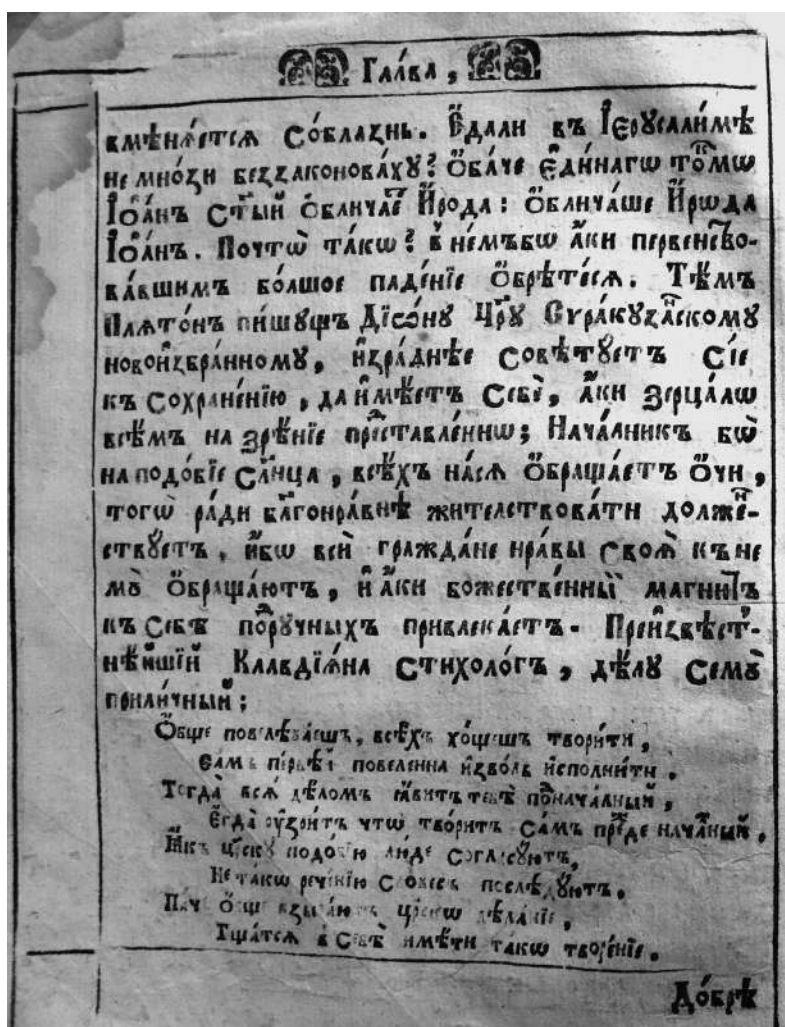 Глава,
вмѣнѧ́етсѧ Со́блазнь. Е҆дали въ І҆ерꙋсали́мѣ
не мно́зи беззаконовахꙋ? Ѻ҆ба́че Е҆ди́нагѡ то́кмѡ
І҆ѡа́нъ Ст҃ый ѡ҆блича́е И҆рода : Ѻ҆блича́ше И҆рѡда
І҆ѡа́нъ. Почтѡ̀ та́кѡ? в не́мъбѡ а҆́ки первенство-
ва́вшимъ бо́лшое паде́нїе Ѻ҆брѣ́тесѧ. Тѣ́мъ
Плѧто́нъ пи́шꙋщъ Дїѡ́нꙋ Цр҃ю Сѵракꙋза́нскомꙋ
новои҆збра́нномꙋ, и҆зрѧ́днѣе Совѣ́тꙋетъ Сїе
къ Сохране́нїю, да и҆мѣ́етъ Себѐ, а҆́ки Зерца́лѡ
всѣ́мъ на зрѣ́нїе предста́вленнѡ; Нача́лникъ бѡ̀
на подо́бїе Сл҃нца, всѣ́хъ на́сѧ Ѻ҆браща́етъ Ѻ҆́чи,
тогѡ̀ ра́ди бл҃гонра́внѣ жителствова́ти должен-
ствꙋ́етъ, и҆́бѡ всѝ гражда́не нра́вы Своѧ̀ къ не
мꙋ̀ Ѻ҆браща́ютъ, и҆ а҆́ки боже́стве́нный магни́тъ
къ Себѣ̀ порꙋ́чныхъ привлека́етъ. Преи҆звѣ́ст-
нѣ́йшїй Клавдїѧ́на Стихоло́гъ, дѣ́лꙋ Семꙋ̀
прили́чный;
Ѻ҆́бще повелѣва́ешъ, всѣ́хъ хо́щешъ твори́ти,
Са́мъ пе́рвѣй повеле́нна и҆зво́ль и҆спо́лнити.
Тогда̀ всѧ̀ дѣ́ломъ ꙗ҆ви́тъ тебѣ̀ поднача́лный,
Е҆гда̀ ѹ҆́зритъ чтѡ̀ твори́тъ Са́мъ пре́де нача́лный.
Ꙗ҆́къ цр҃скꙋ подо́бїю лю́де Согласꙋ́ютъ,
Не та́кѡ рече́нїю Слове́съ послѣ́дꙋютъ.
Па́че Ѻ҆́бще взыва́ютъ цр҃скѡ дѣ́ланїе,
Тща́тсѧ в Себѣ̀ имѣ́ти та́кѡ творе́нїе.
До́брѣ